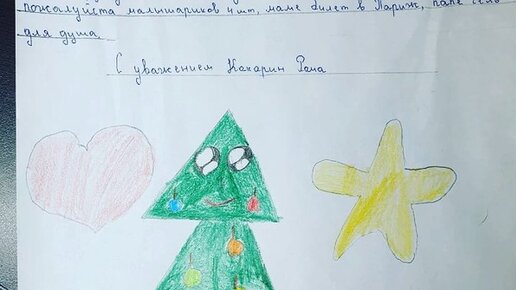 пожалуйста малышариков 4 шт, маме билет в Париж, папе
для душа.
С уважением Кокарин Рома